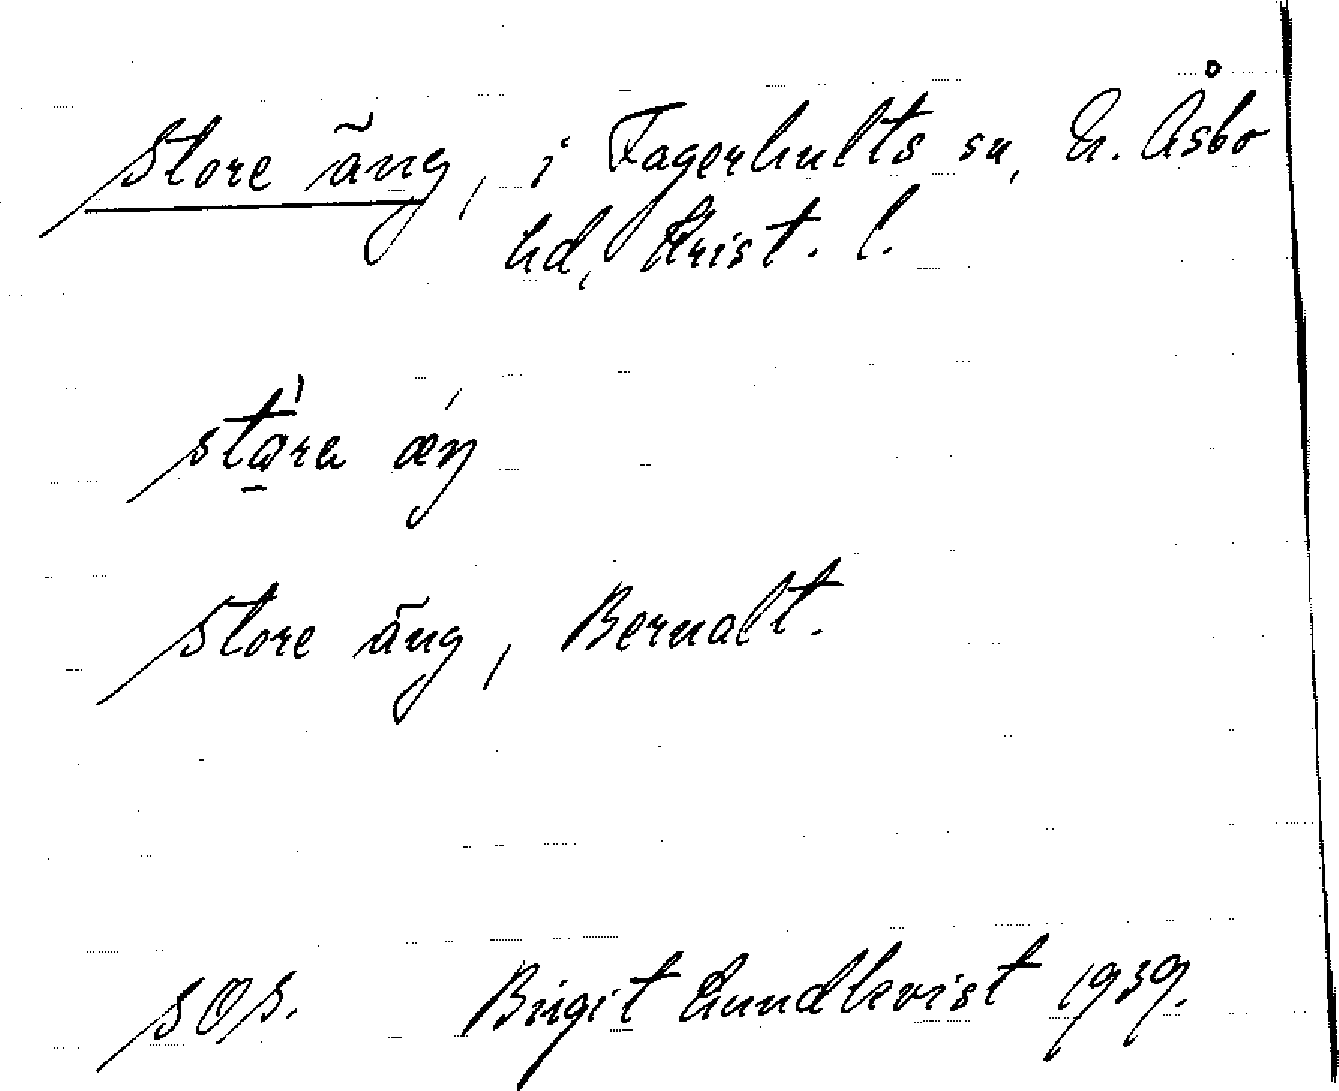 Store äng, i Fagerhults sn, N. Åsbo
hd, Krist. l.
stǫ̀ra ǽŋ
Store äng, Bernalt.
SOS. Birgit Lundkvist 1939.